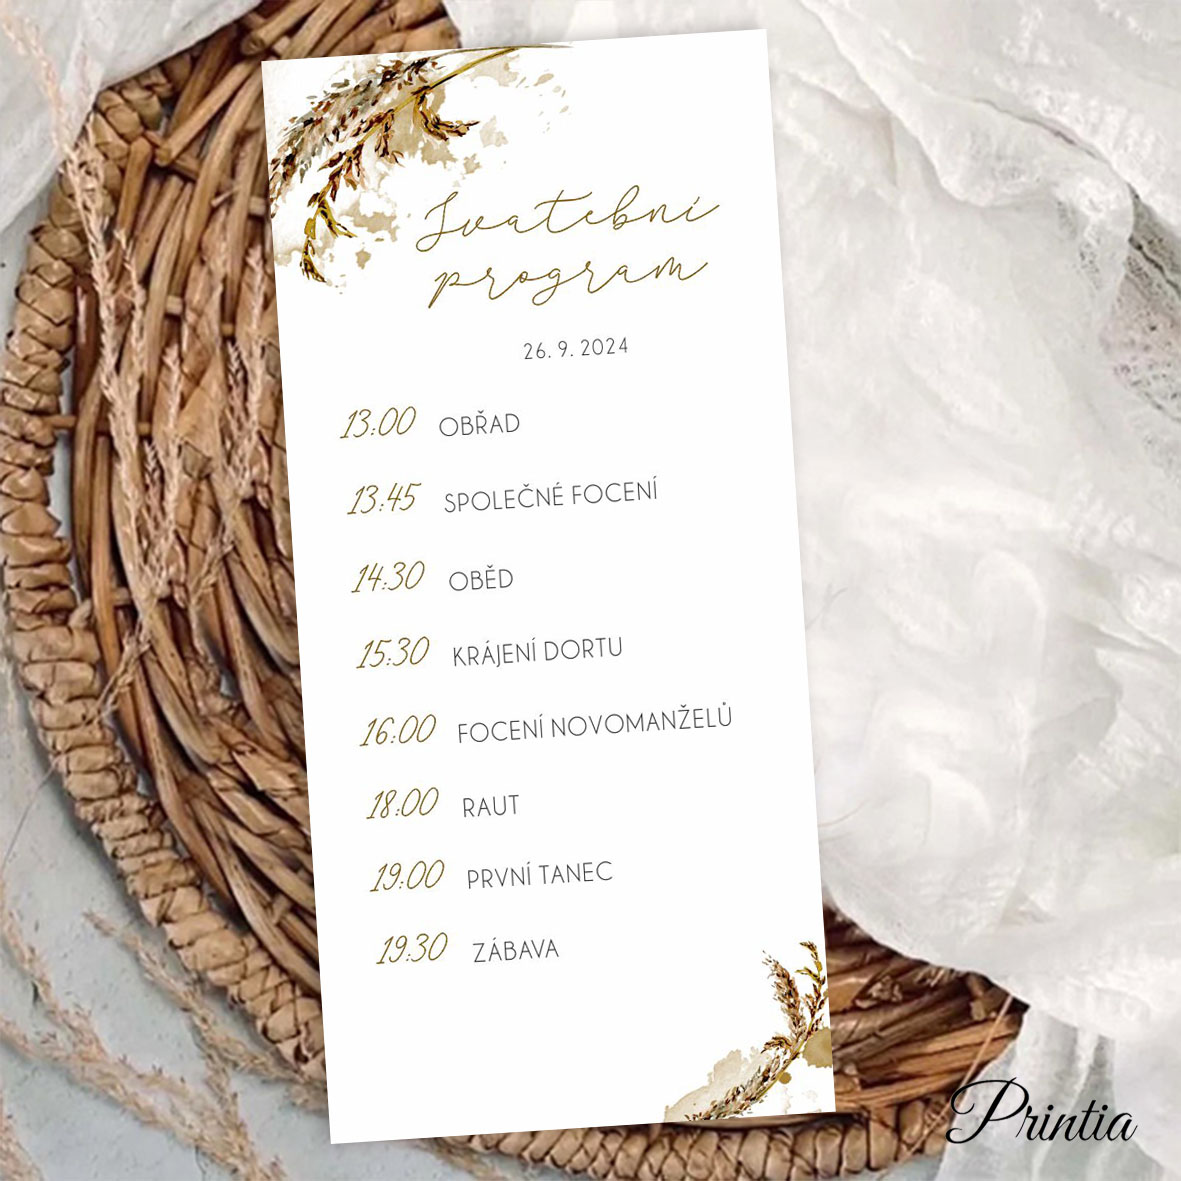 Svatební
program
26. 9. 2024
13:00 OBŘAD
13:45 SPOLEČNÉ FOCENÍ
14:30 OBĚD
15:30 KRÁJENÍ DORTU
16:00 FOCENÍ NOVOMANŽELŮ
18:00 RAUT
19:00 PRVNÍ TANEC
19:30 ZÁBAVA
Printia